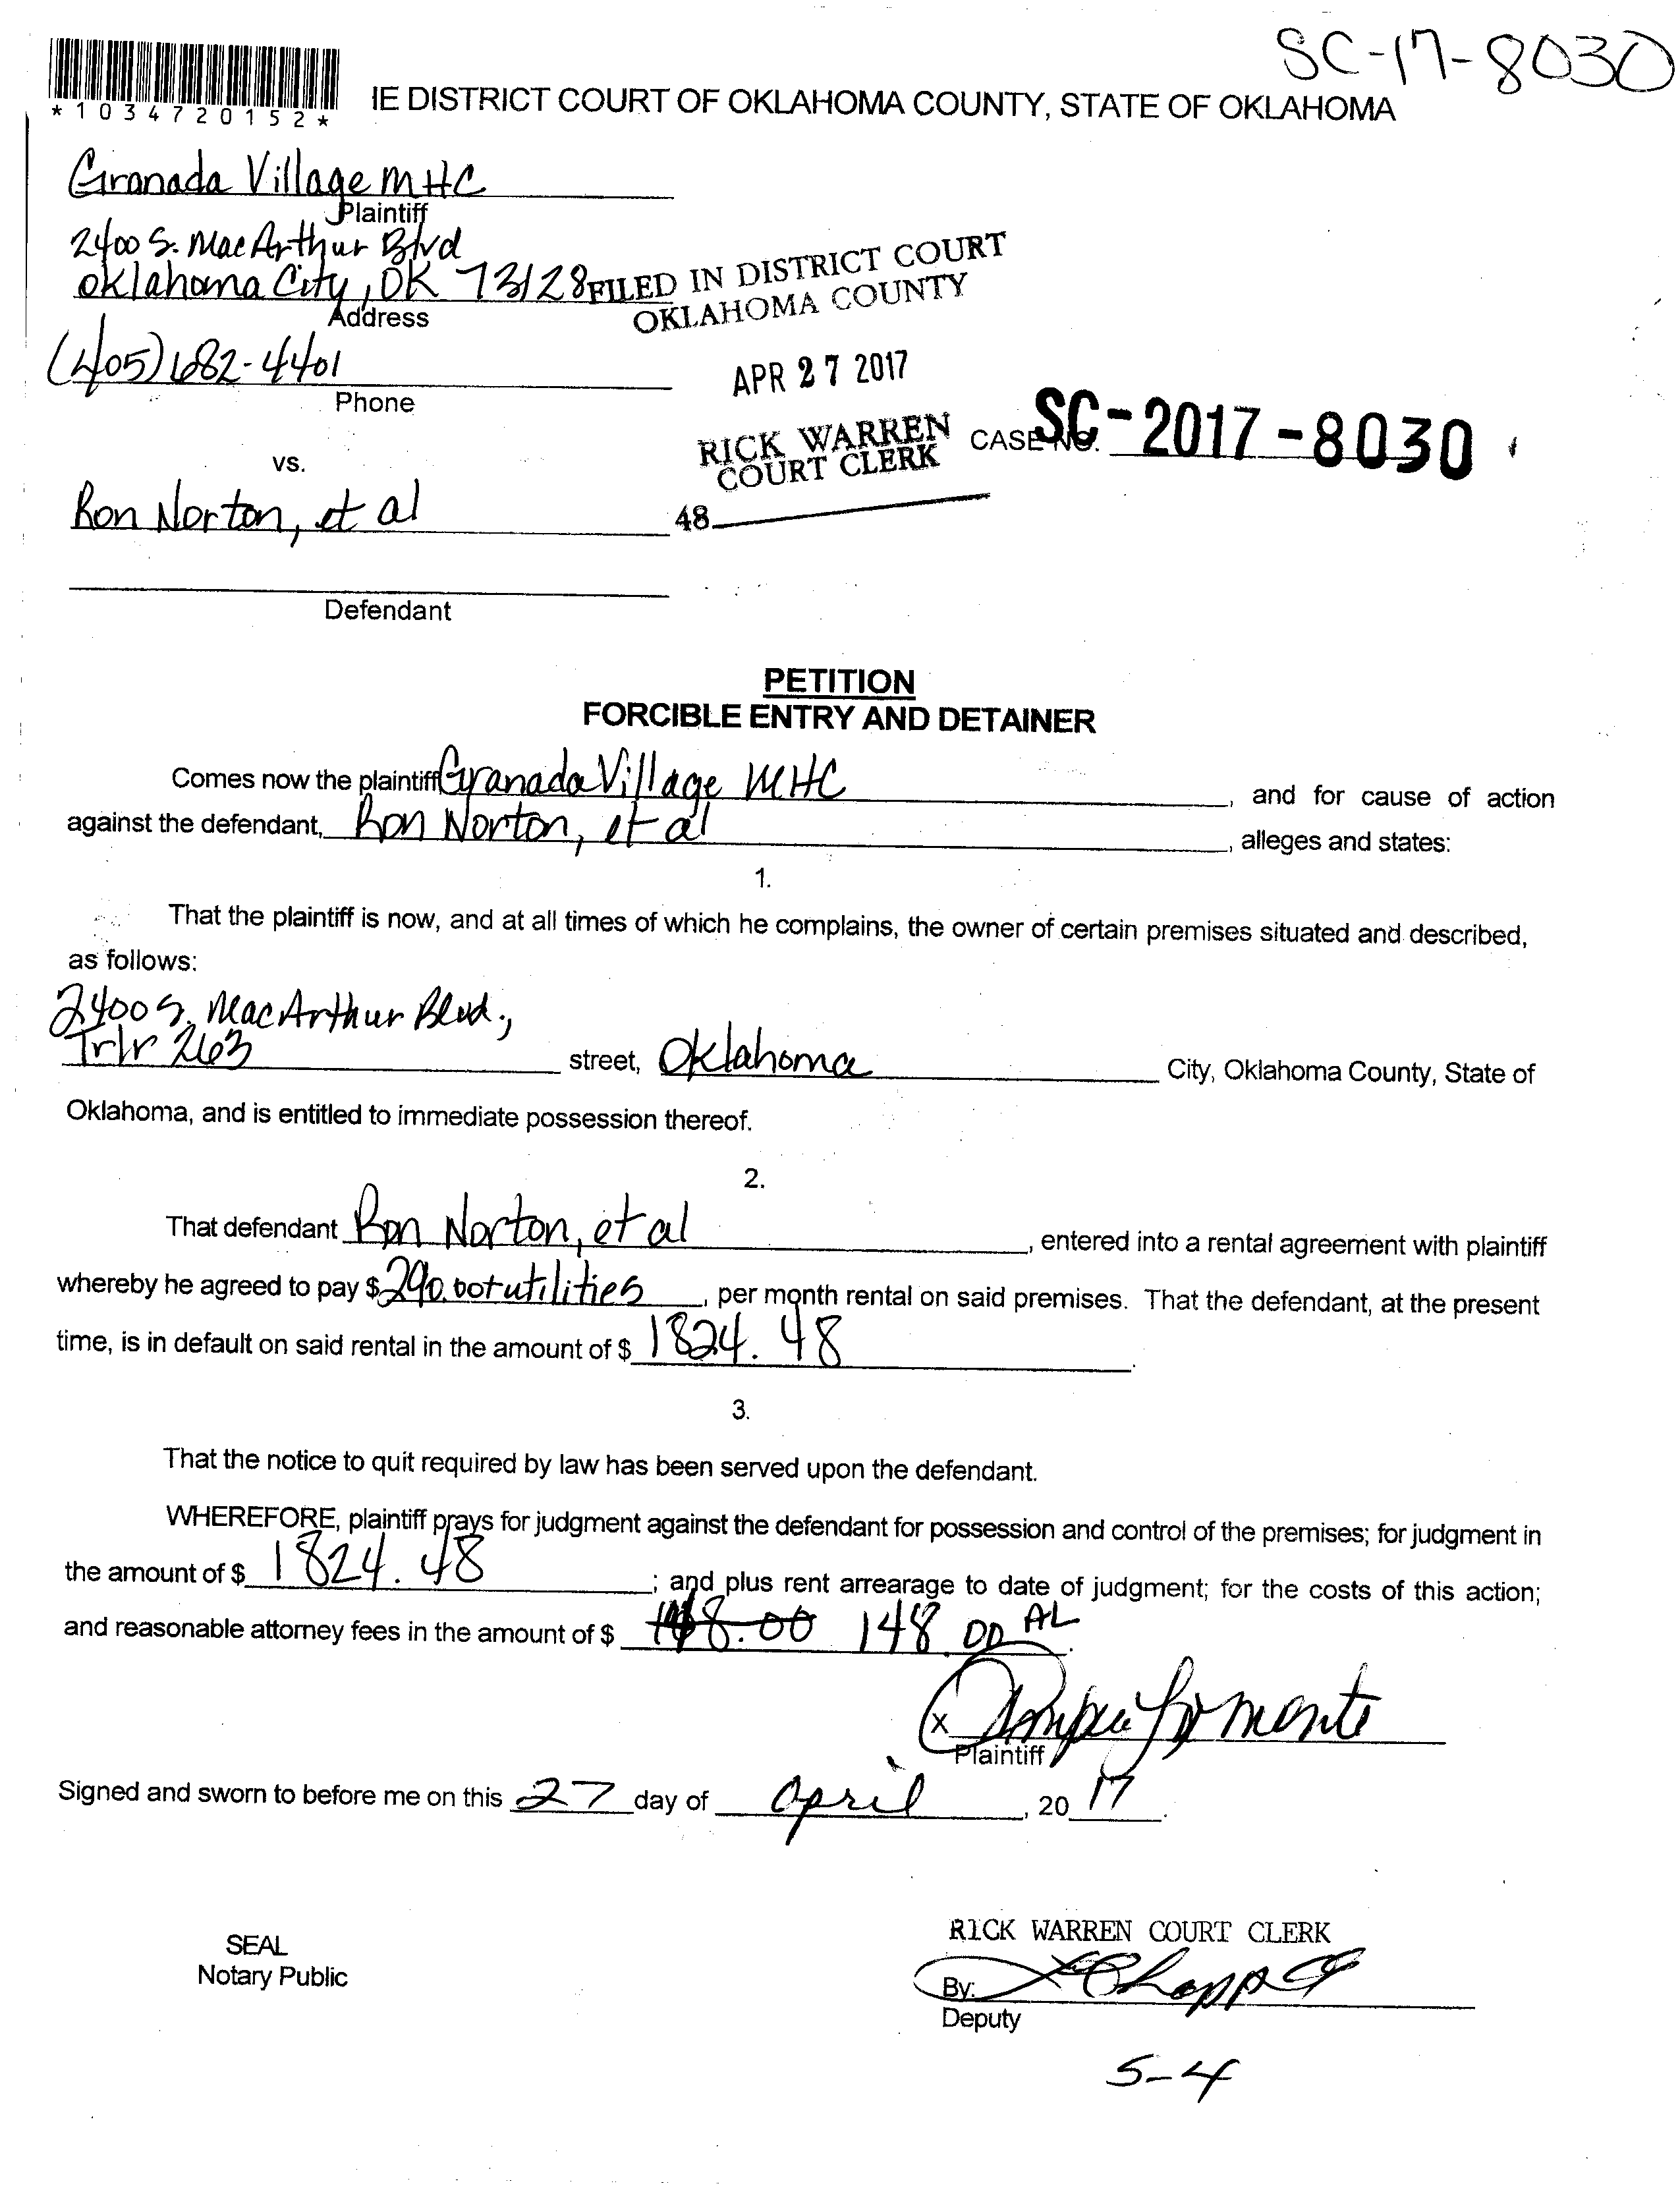 SC-17-8030
*1034720152*
IE DISTRICT COURT OF OKLAHOMA COUNTY, STATE OF OKLAHOMA
Granada Village MHC
Plaintiff
2400 S. MacArthur Blvd
Oklahoma City, OK 73128
Address
FILED IN DISTRICT COURT
OKLAHOMA COUNTY
(405) 682-4401
Phone
APR 27 2017
RICK WARREN
COURT CLERK
CASE NO. SC-2017-8030
vs.
Ron Norton, et al
48
Defendant
PETITION
FORCIBLE ENTRY AND DETAINER
Comes now the plaintiff Granada Village MHC, and for cause of action
against the defendant, Ron Norton, et al, alleges and states:
1.
That the plaintiff is now, and at all times of which he complains, the owner of certain premises situated and described,
as follows:
2400 S. MacArthur Blvd.,
Trlr 263 street, Oklahoma City, Oklahoma County, State of
Oklahoma, and is entitled to immediate possession thereof.
2.
That defendant Ron Norton, et al, entered into a rental agreement with plaintiff
whereby he agreed to pay $ 290.00+utilities, per month rental on said premises. That the defendant, at the present
time, is in default on said rental in the amount of $ 1824.48.
3.
That the notice to quit required by law has been served upon the defendant.
WHEREFORE, plaintiff prays for judgment against the defendant for possession and control of the premises; for judgment in
the amount of $ 1824.48; and plus rent arrearage to date of judgment; for the costs of this action;
and reasonable attorney fees in the amount of $ 148.00 AL.
X
Plaintiff
Signed and sworn to before me on this 27 day of April, 20 17.
RICK WARREN COURT CLERK
SEAL
Notary Public
By:
Deputy
5-4